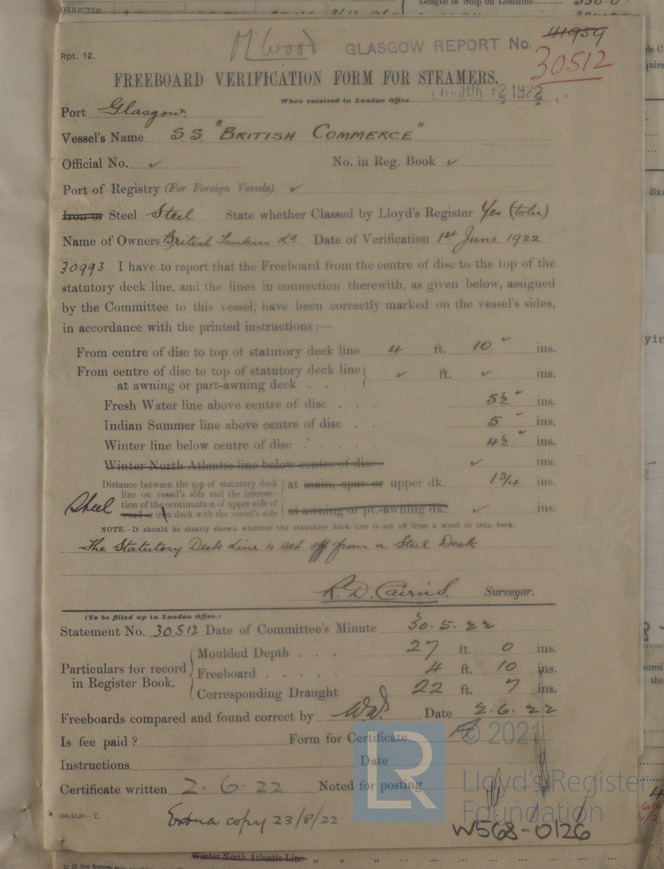 CORRECTED
Length of Ship on Loadline
Rpt. 12.
M Wood
GLASGOW REPORT No. 41959
30512
FREEBOARD VERIFICATION FORM FOR STEAMERS.
When received in London Office
2 1922
Port Glasgow
Vessel's Name S S "BRITISH COMMERCE"
Official No. ✓ No. in Reg. Book ✓
Port of Registry (For Foreign Vessels) ✓
Iron or Steel Steel State whether Classed by Lloyd's Register Yes (to be)
Name of Owners British Tankers Ld Date of Verification 1st June 1922
30993 I have to report that the Freeboard from the centre of disc to the top of the
statutory deck line, and the lines in connection therewith, as given below, assigned
by the Committee to this vessel, have been correctly marked on the vessel's sides,
in accordance with the printed instructions:—
From centre of disc to top of statutory deck line 4 ft. 10 ✓ ins.
From centre of disc to top of statutory deck line
at awning or part-awning deck . . . ✓ ft. ✓ ins.
Fresh Water line above centre of disc . . 5½ ✓ ins.
Indian Summer line above centre of disc . 5 ✓ ins.
Winter line below centre of disc . . . . . 4½ ✓ ins.
Winter North Atlantic line below centre of disc ✓ ins.
Distance between the top of statutory deck
line on vessel's side and the intersec-
tion of the continuation of upper side of
wood or iron deck with the vessel's side
Steel
at main, spar or upper dk. 1¾ ins.
at awning or pt.-awning dk. ✓ ins.
NOTE.—It should be clearly shown whether the statutory deck line is set off from a wood or iron deck.
The Statutory Deck Line is set off from a Steel Deck
R. D. Cairns. Surveyor.
(To be filled up in London Office.)
Statement No. 30512 Date of Committee's Minute 30.5.22
Particulars for record
in Register Book.
Moulded Depth . . . 27 ft. 0 ins.
Freeboard . . . . . 4 ft. 10 ins.
Corresponding Draught 22 ft. 7 ins.
Freeboards compared and found correct by Date 2.6.22
Is fee paid ? Form for Certificate
Instructions Date
Certificate written 2.6.22 Noted for posting
Extra copy 23/8/22
© 2021
LR
Lloyd's Register
Foundation
W568-0126
Winter North Atlantic Line